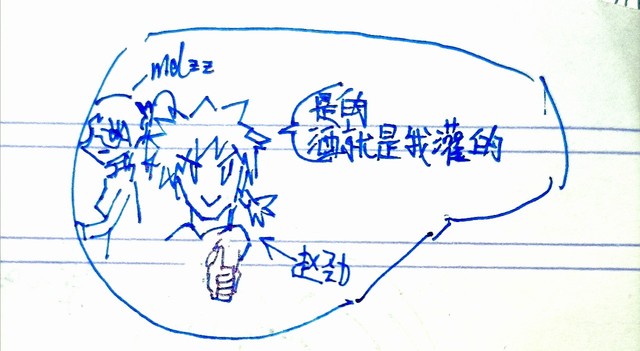 molzz
是的
酒就是我灌的
赵劲